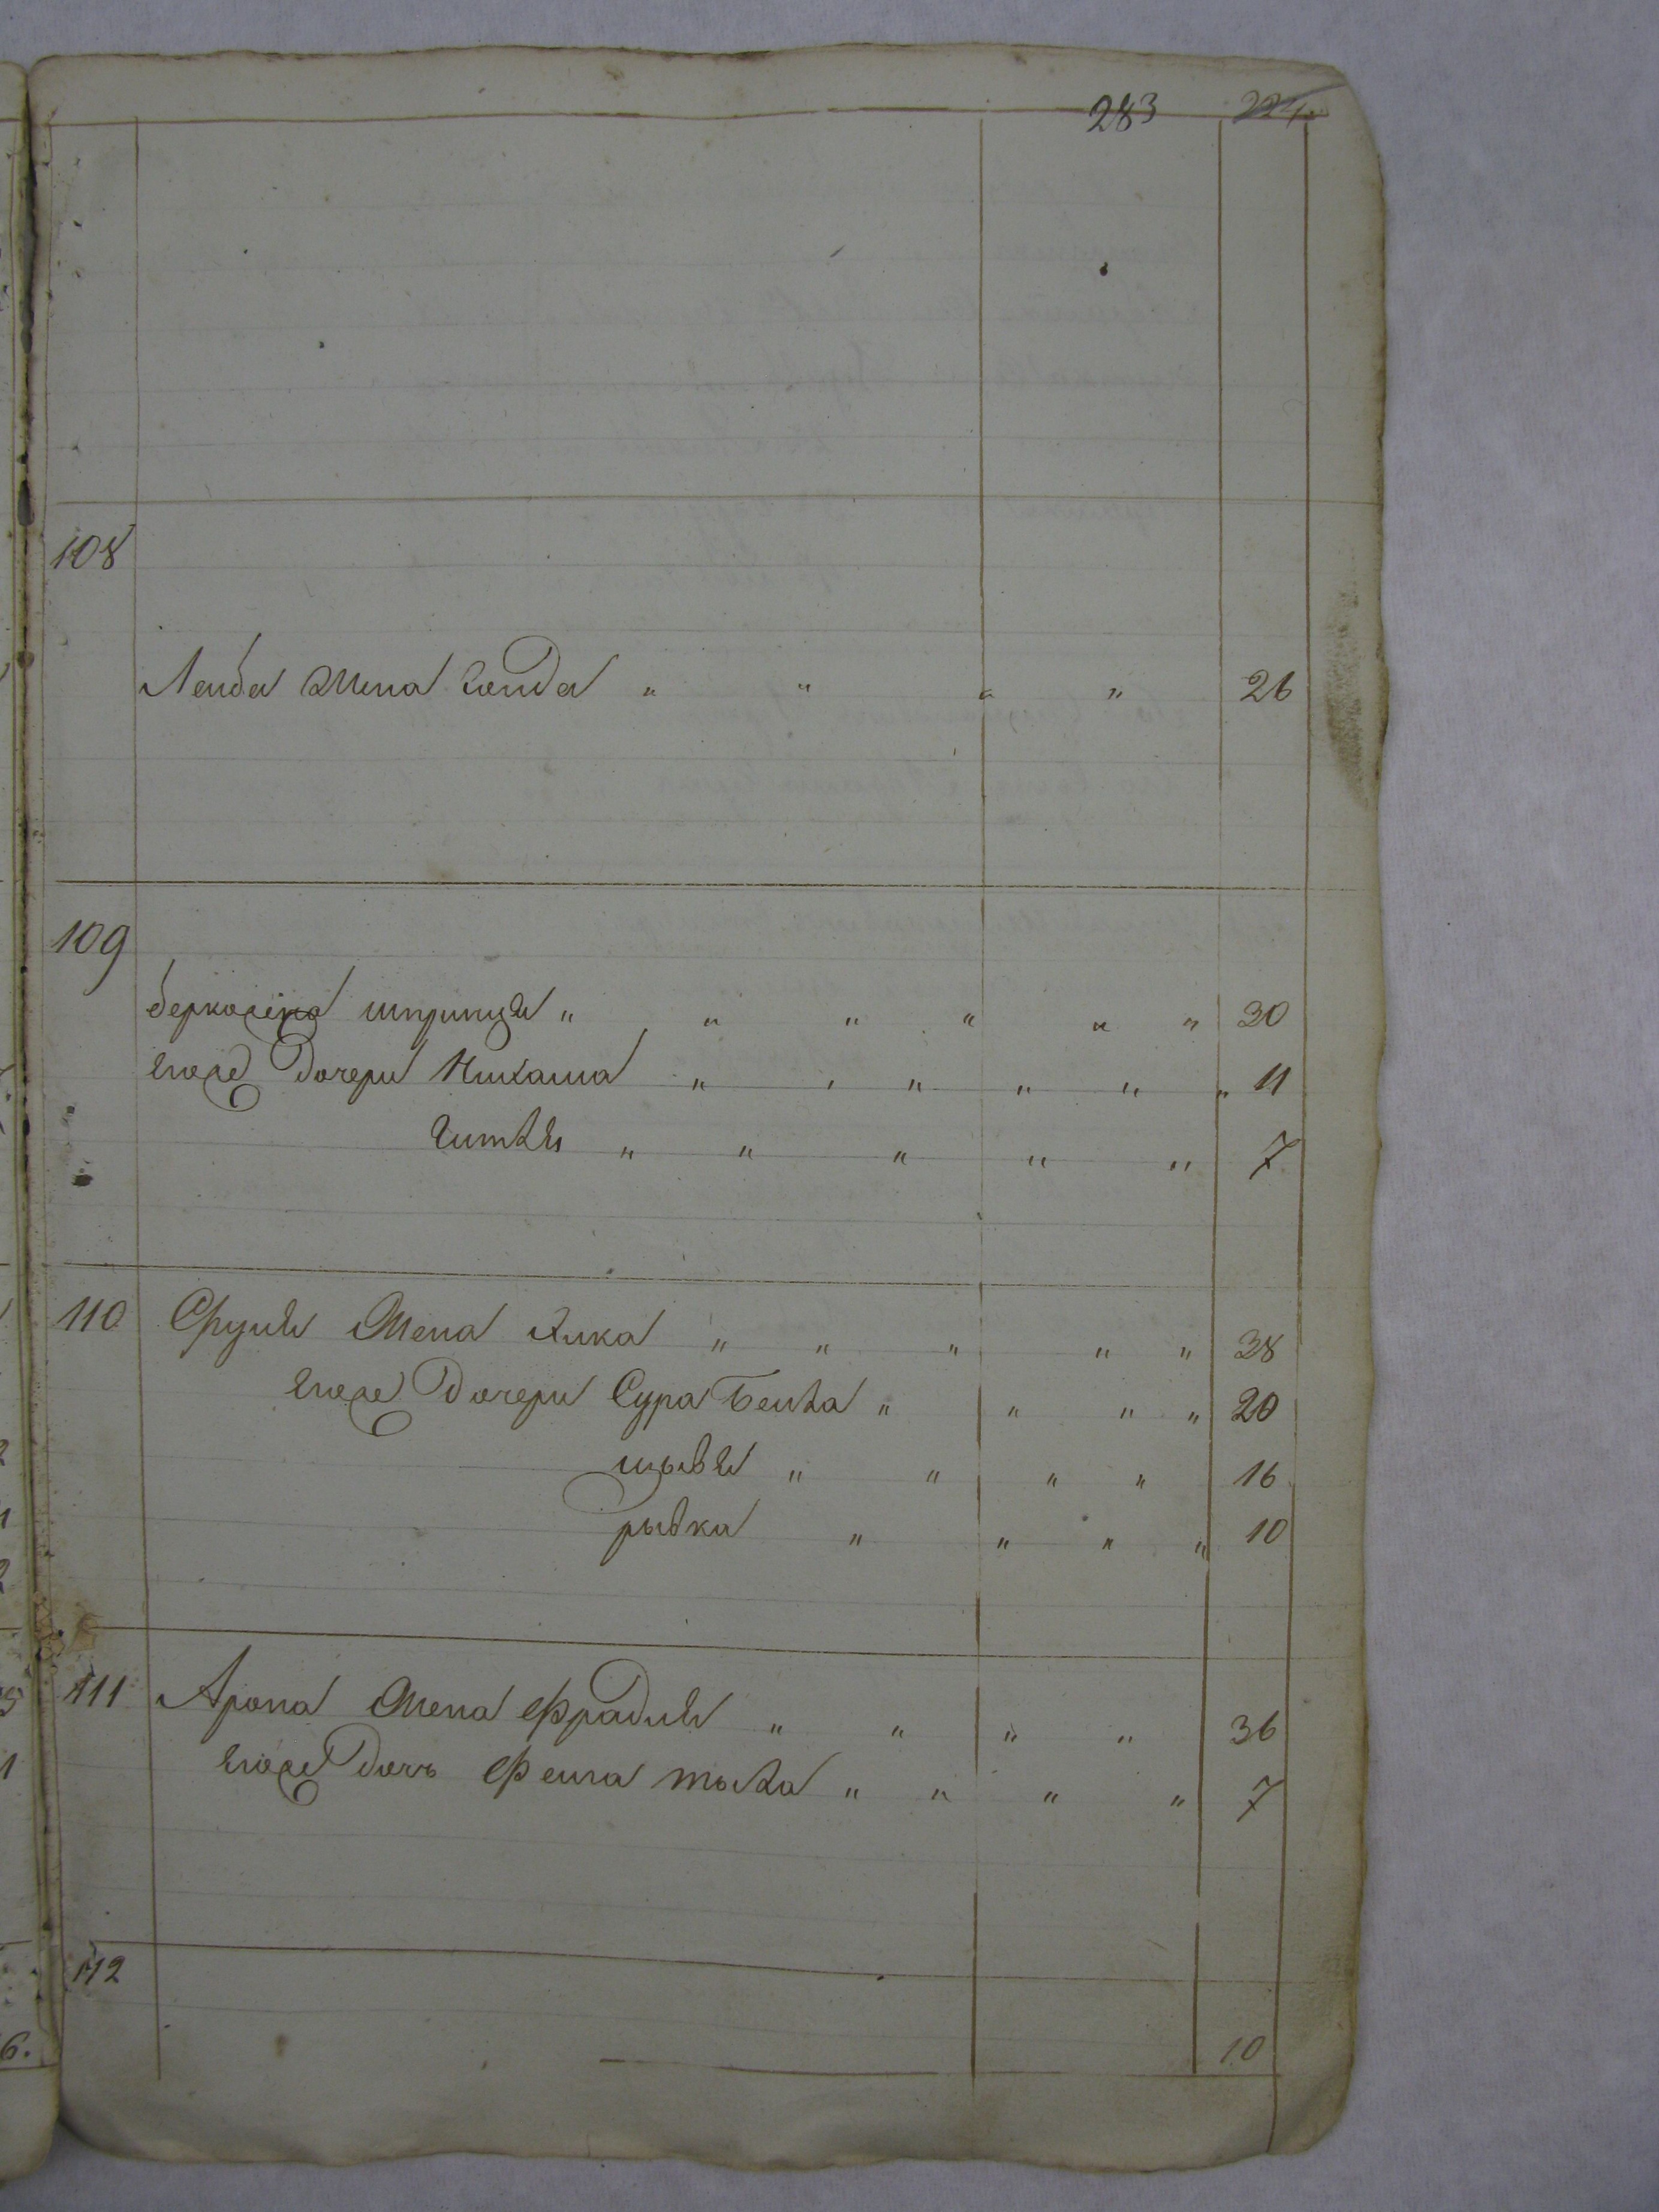 283 224.
108
Лейба жена Генда " " " " 26
109
берколена шпринця " " " " " " 30
егоже дочери Нихама " " " " " " 11
Гитля " " " " " 7
110 Сруля жена хика " " " " " 38
егоже дочери Сура бейла " " " " 20
цывья " " " " 16
рывка " " " " 10
111 Арона жена Фрадля " " " " 36
егоже дочь Фейга " " " " 7
112
10